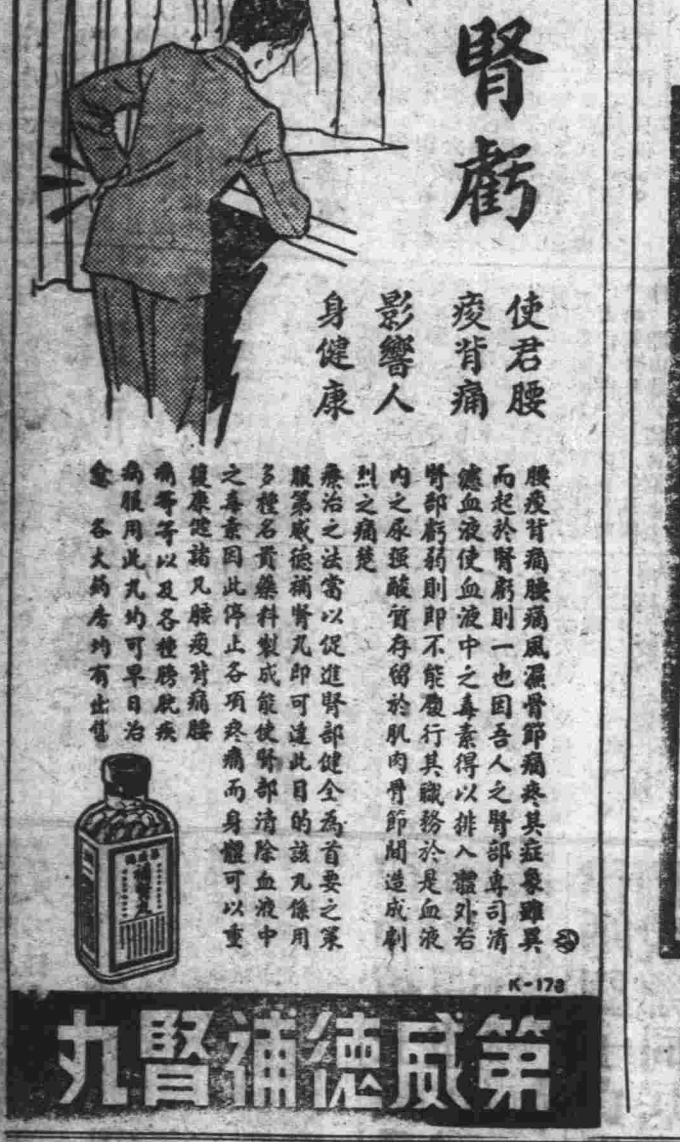 腎虧
使君腰
痠背痛
影響人
身健康
腰痠背痛腰痛風濕骨節痛疼其症象雖異
而起於腎虧則一也因吾人之腎部專司清
濾血液使血液中之毒素得以排入體外若
腎部虧弱則即不能履行其職務於是血液
內之尿强酸質存留於肌肉骨節間造成劇
烈之痛楚
療治之法當以促進腎部健全為首要之策
服第威德補腎丸即可達此目的該丸係用
多種名貴藥料製成能使腎部清除血液中
之毒素因此停止各項疼痛而身體可以重
復康健諸凡腰痠背痛腰
痛等等以及各種膀胱疾
病服用此丸均可早日治
愈　各大藥房均有出售
補腎丸
K-178
第威德補腎丸